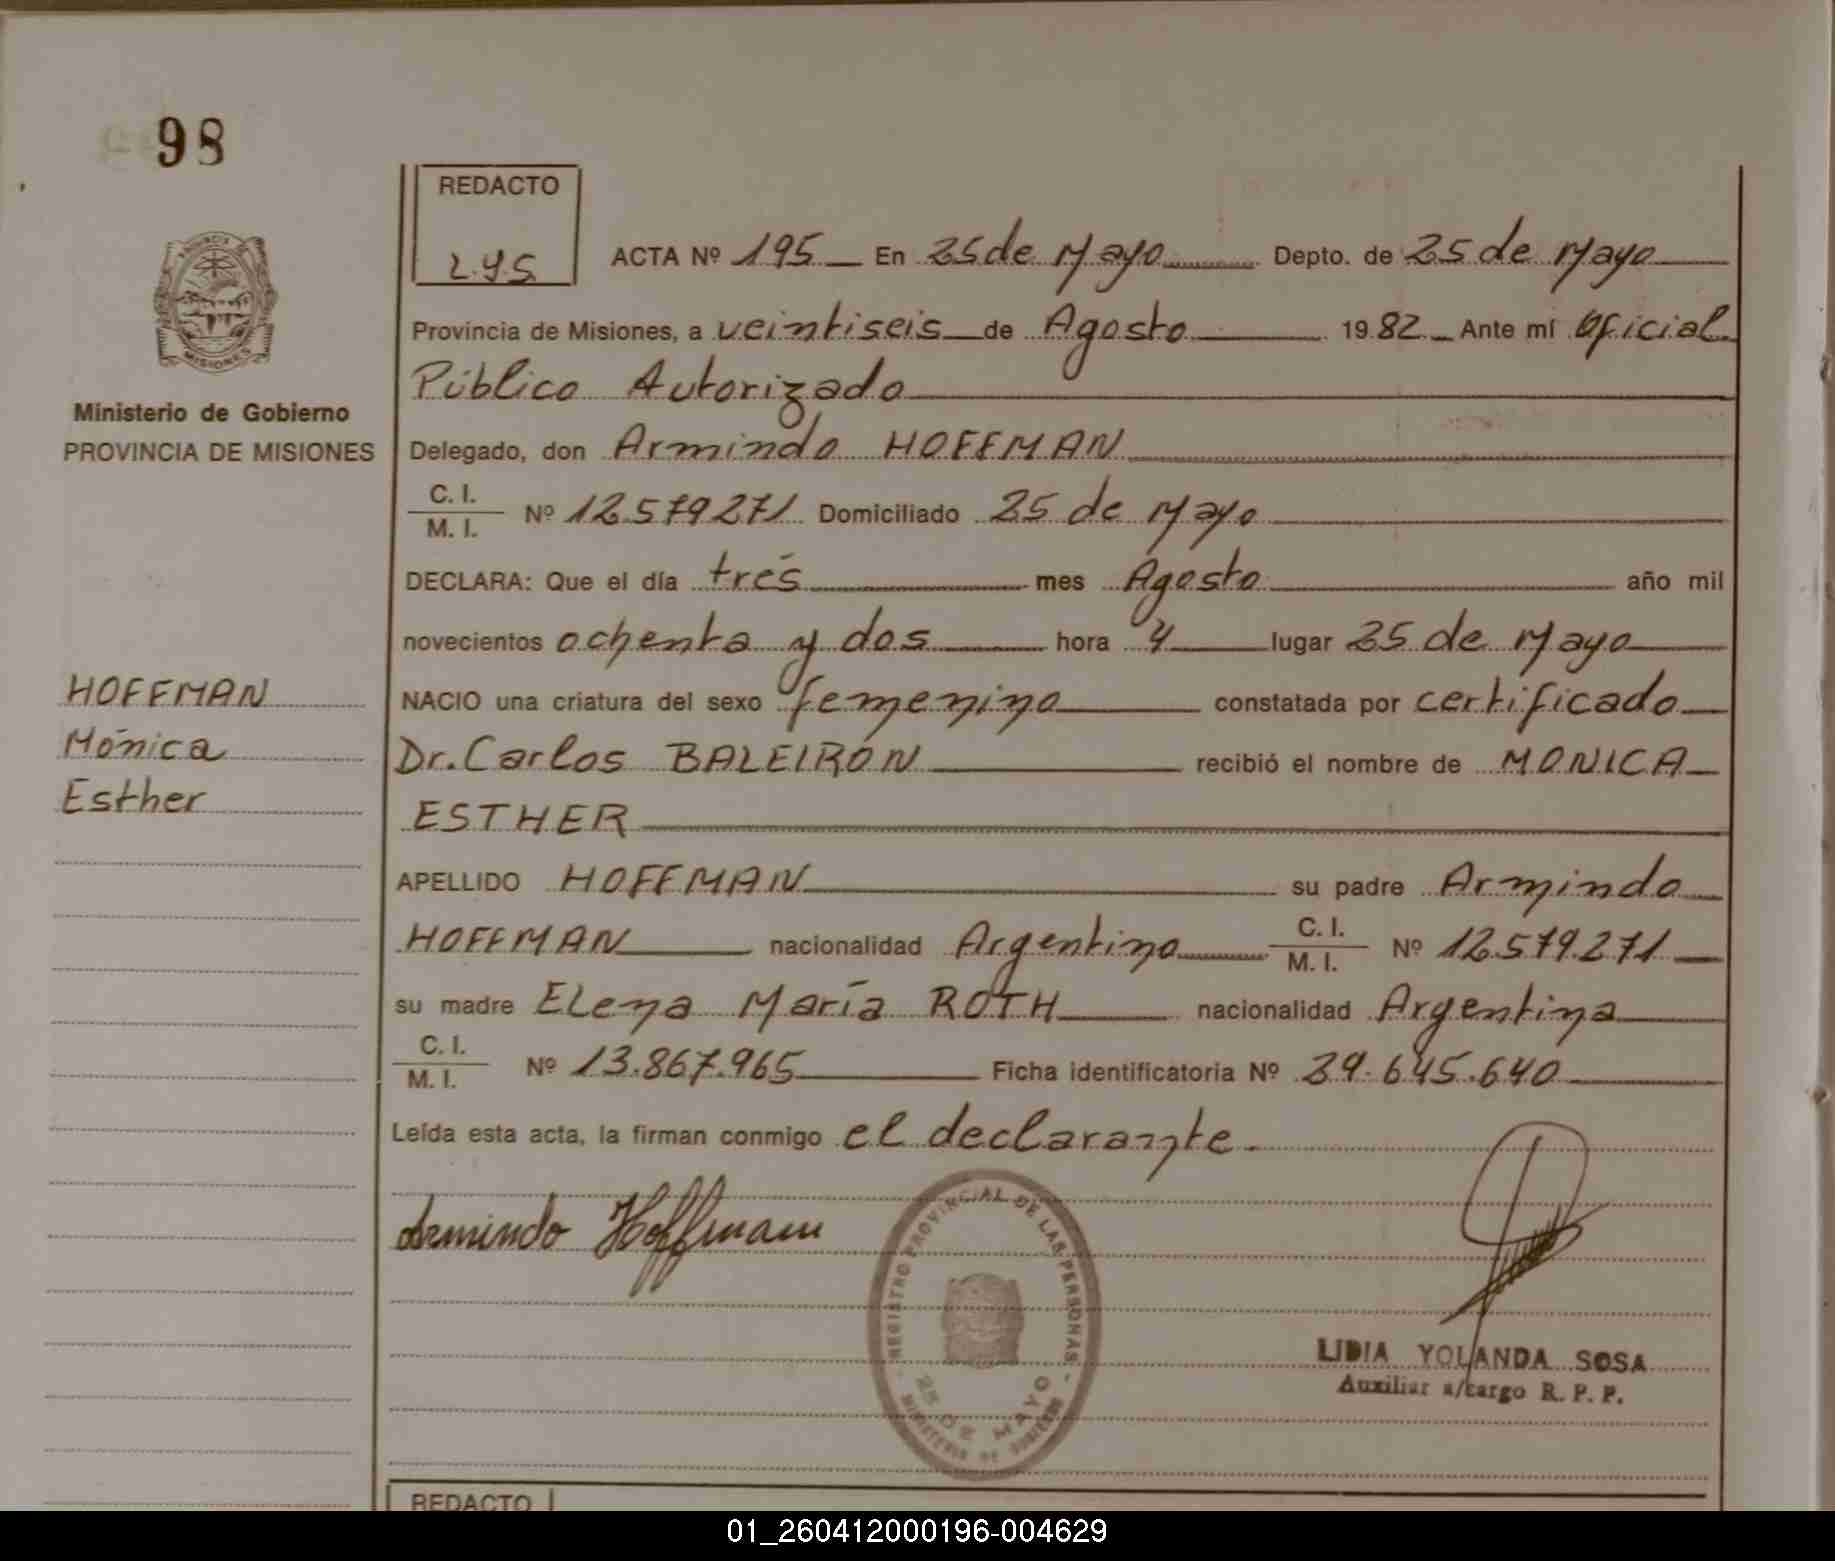 98
REDACTO
L.Y.S.
ACTA Nº 195 En 25 de Mayo Depto. de 25 de Mayo
Provincia de Misiones, a veintiseis de Agosto 1982 Ante mí Oficial
Público Autorizado
Ministerio de Gobierno
PROVINCIA DE MISIONES
Delegado, don Armindo HOFFMAN
C. I.
M. I.
Nº 12.579.271 Domiciliado 25 de Mayo
DECLARA: Que el día tres mes Agosto año mil
novecientos ochenta y dos hora 4 lugar 25 de Mayo
HOFFMAN
Mónica
Esther
NACIO una criatura del sexo femenino constatada por certificado
Dr. Carlos BALEIRON recibió el nombre de MONICA
ESTHER
APELLIDO HOFFMAN su padre Armindo
HOFFMAN nacionalidad Argentino C. I. M. I. Nº 12.579.271
su madre Elena María ROTH nacionalidad Argentina
C. I.
M. I.
Nº 13.867.965 Ficha identificatoria Nº 29.645.640
Leída esta acta, la firman conmigo el declarante.
Armindo Hoffmam
REGISTRO PROVINCIAL DE LAS PERSONAS
25 DE MAYO
MINISTERIO DE GOBIERNO
LIDIA YOLANDA SOSA
Auxiliar a/cargo R. P. P.
REDACTO
01_260412000196-004629